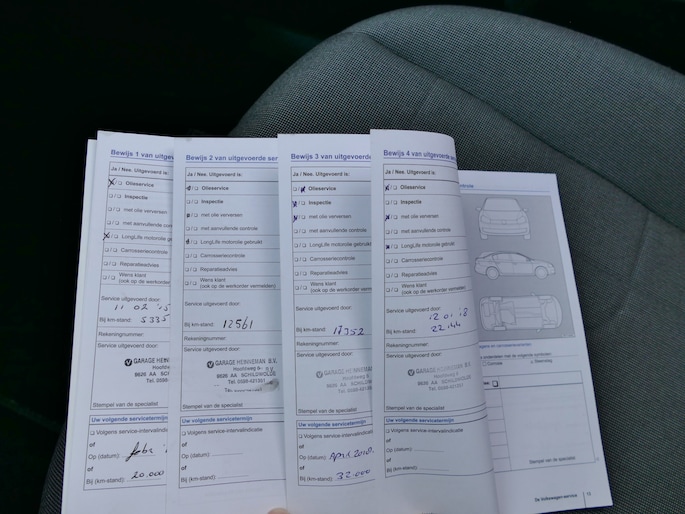 Bewijs 1 van uitgevoerde
Ja / Nee. Uitgevoerd is:
Olieservice
Inspectie
met olie verversen
met aanvullende controle
LongLife motorolie ge
Carrosseriecontrole
Reparatieadvies
Wens klant
(ook op de werkorder
Service uitgevoerd door:
11 02 '15
Bij km-stand: 5335
Rekeningnummer:
Service uitgevoerd door:
GARAGE HEINNE
9626 AA SCHI
Tel. 0598-
Stempel van de specialist
Uw volgende servicetermijn
Volgens service-intervalindic
of
Op (datum):
of
Bij (km-stand): 20.000
Bewijs 2 van uitgevoerde ser
Ja / Nee. Uitgevoerd is:
Olieservice
Inspectie
met olie verversen
met aanvullende controle
LongLife motorolie gebruikt
Carrosseriecontrole
Reparatieadvies
Wens klant
(ook op de werkorder vermelden)
Service uitgevoerd door:
Bij km-stand: 12561
Rekeningnummer:
Service uitgevoerd door:
GARAGE HEINNEMAN B.V.
Hoofdweg
9626 AA SCHILDWOLDE
Tel. 0598-421351
Stempel van de specialist
Uw volgende servicetermijn
Volgens service-intervalindicatie
of
Op (datum):
of
Bij (km-stand):
Bewijs 3 van uitgevoerde
Ja / Nee. Uitgevoerd is:
Olieservice
Inspectie
met olie verversen
met aanvullende controle
LongLife motorolie gebruikt
Carrosseriecontrole
Reparatieadvies
Wens klant
(ook op de werkorder vermelden)
Service uitgevoerd door:
Bij km-stand: 17352
Rekeningnummer:
Service uitgevoerd door:
GARAGE HEINNEMAN
Hoofdweg
9626 AA SCHILDWOL
Tel. 0598-42135
Stempel van de specialist
Uw volgende servicetermijn
Volgens service-intervalindicatie
of
Op (datum): April 2018
of
Bij (km-stand): 32.000
Bewijs 4 van uitgevoerde serv
Ja / Nee. Uitgevoerd is:
Olieservice
Inspectie
met olie verversen
met aanvullende controle
LongLife motorolie gebruikt
Carrosseriecontrole
Reparatieadvies
Wens klant
(ook op de werkorder vermelden)
Service uitgevoerd door:
12 01 18
Bij km-stand: 22.144
Rekeningnummer:
Service uitgevoerd door:
GARAGE HEINNEMAN
9626 AA SCHILDWOL
Tel. 0598-421351
Stempel van de specialist
Uw volgende servicetermijn
Volgens service-intervalindicatie
of
Op (datum):
of
Bij (km-stand):
Stempel van de specialist
De Volkswagen-service